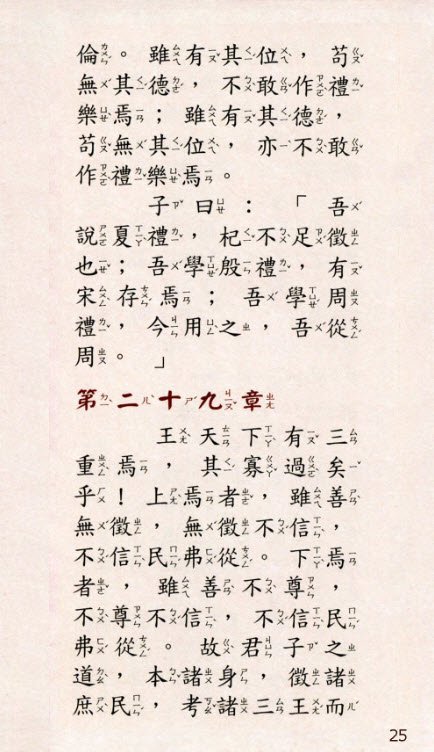 倫。雖有其位，苟
無其德，不敢作禮
樂焉；雖有其德，
苟無其位，亦不敢
作禮樂焉。
子曰：「吾
說夏禮，杞不足徵
也；吾學殷禮，有
宋存焉；吾學周
禮，今用之，吾從
周。」
第二十九章
王天下有三
重焉，其寡過矣
乎！上焉者，雖善
無徵，無徵不信，
不信民弗從。下焉
者，雖善不尊，
不尊不信，不信民
弗從。故君子之
道，本諸身，徵諸
庶民，考諸三王而
25